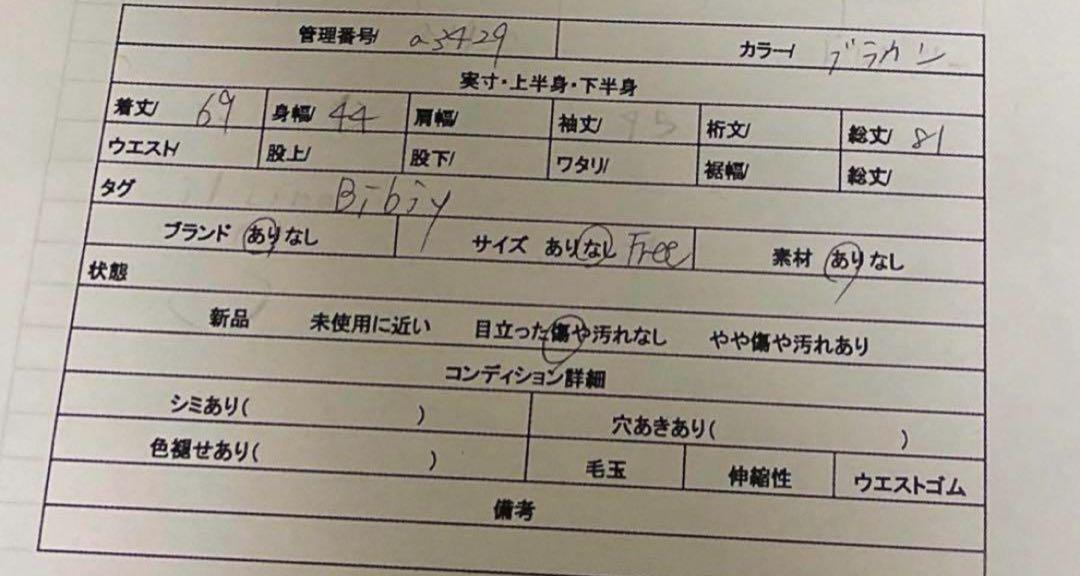 管理番号/ a3429 カラー/ ブラウン
実寸・上半身・下半身
着丈/ 69 身幅/ 44 肩幅/ 袖丈/ 45 裄丈/ 総丈/ 81
ウエスト/ 股上/ 股下/ ワタリ/ 裾幅/ 総丈/
タグ Bibiy
ブランド ありなし サイズ ありなし Free 素材 ありなし
状態
新品 未使用に近い 目立った傷や汚れなし やや傷や汚れあり
コンディション詳細
シミあり( ) 穴あきあり( )
色褪せあり( ) 毛玉 伸縮性 ウエストゴム
備考